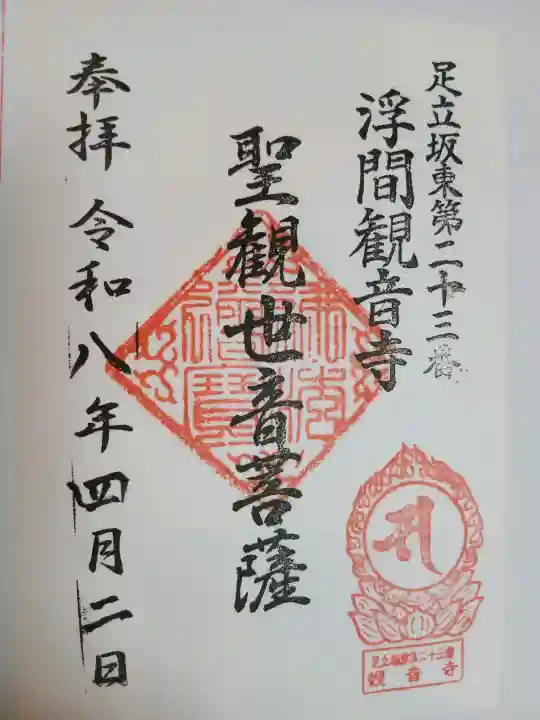 足立坂東第二十三番
浮間観音寺
聖観世音菩薩
奉拝 令和八年四月二日
足立坂東第二十三番
観音寺